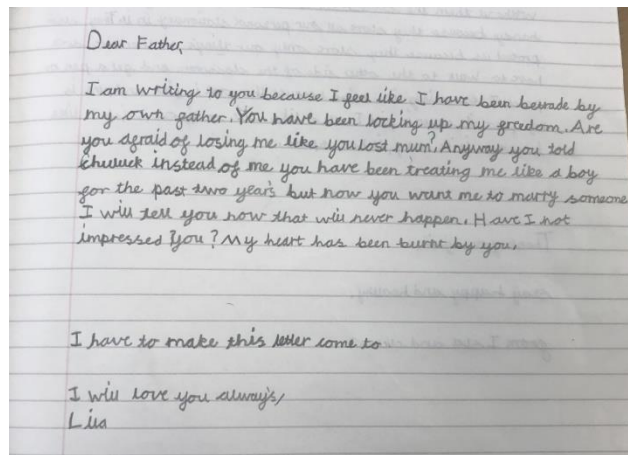 Dear Father,
I am writing to you because I feel like I have been betrade by
my own father. You have been locking up my freedom. Are
you afraid of losing me like you lost mum? Anyway you told
Chuluck instead of me you have been treating me like a boy
for the past two years but now you want me to marry someone
I will tell you now that will never happen. Have I not
impressed you? My heart has been burnt by you.
I have to make this letter come to
I will love you always,
Lila